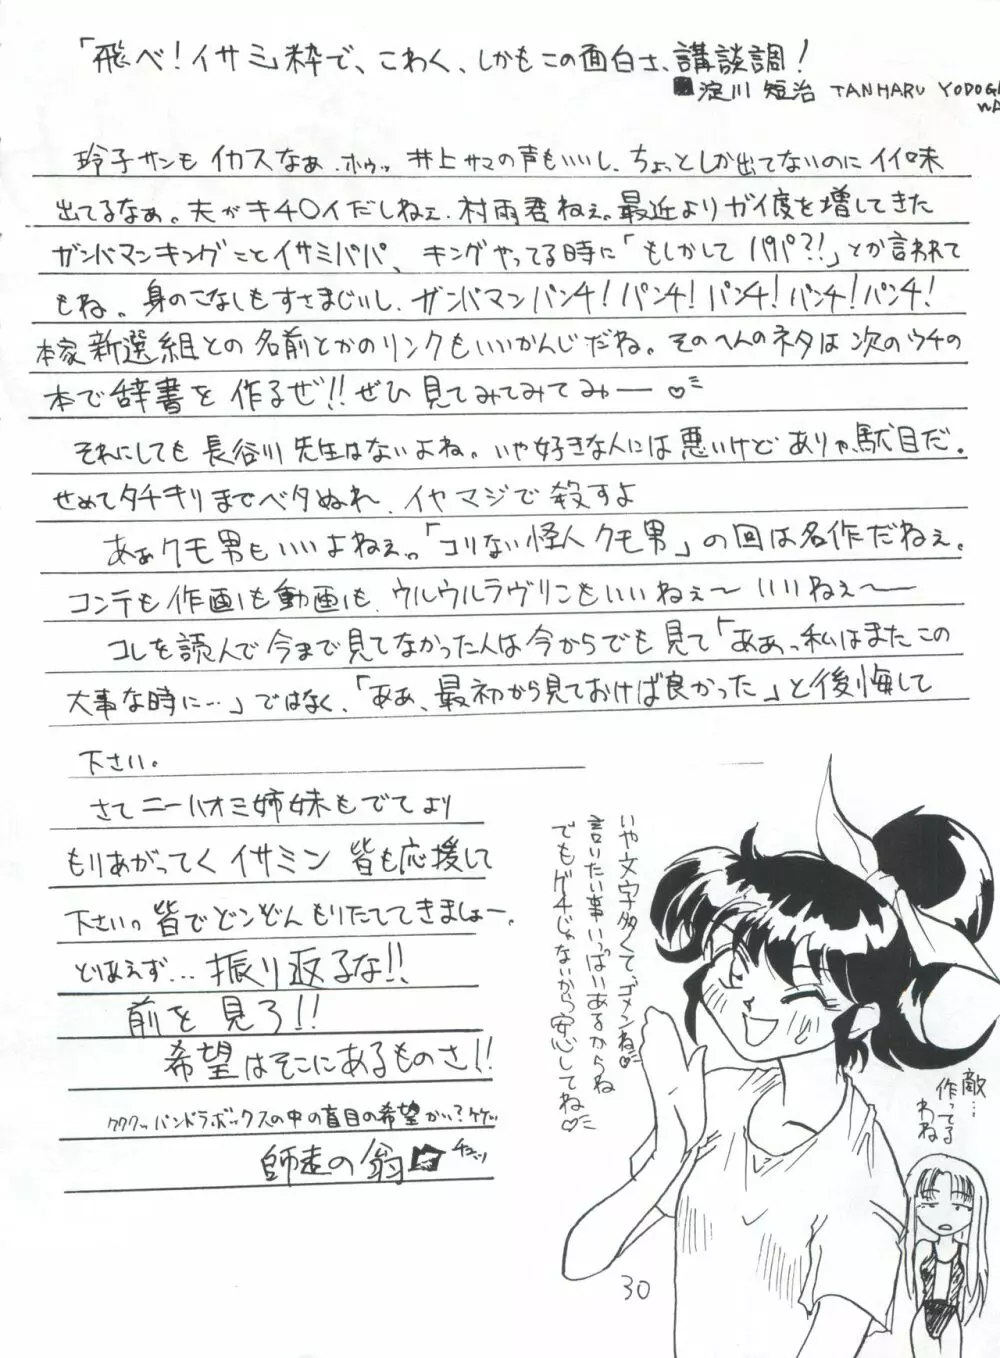 「飛べ!イサミ」粋で、こわく、しかもこの面白さ、講談調!
■淀川 短治 TANHARU YODOGAWA
玲子サンもイカスなぁ、ホゥッ 井上サマの声もいいし、ちょっとしか出てないのにイイ味
出てるなぁ。夫がキ40イだしねぇ、村雨君ねぇ。最近よりガイ度を増してきた
ガンバマンキングことイサミパパ、キングやってる時に「もしかしてパパ?!」とか言われて
もね。身のこなしもすさまじいし、ガンバマンパンチ!パンチ!パンチ!パンチ!パンチ!
本家新選組との名前とかのリンクもいいかんじだね。そのへんのネタは次のウチの
本で辞書を作るぜ!!ぜひ見てみてみてみゅー♡
それにしても長谷川先生はないよね。いや好きな人には悪いけどありゃ駄目だ。
せめてタチキリまでベタぬれ、イヤマジで殺すよ
あぁクモ男もいいよねぇ。「コリない怪人クモ男」の回は名作だねぇ。
コンテも作画も動画も、ウルウルラヴリこもいいねぇ〜いいねぇ〜
コレを読んで今まで見てなかった人は今からでも見て「ああっ私はまたこの
大事な時に…」ではなく、「ああ、最初から見ておけば良かった」と後悔して
下さい。
さてニーハオミ姉妹もでてより
もりあがってくイサミン 皆も応援して
下さい。皆でどンどんもりたててきましょー。
とりあえず…振り返るな!!
前を見ろ!!
希望はそこにあるものさ!!
ククククッパンドラボックスの中の盲目の希望かい?ケケッ
師走の翁 チュッ
いや文字多くて、ゴメンね♡
言いたい事いっぱいあるからね
でもグチじゃないから安心してね♡
敵…
作ってる
わね
30